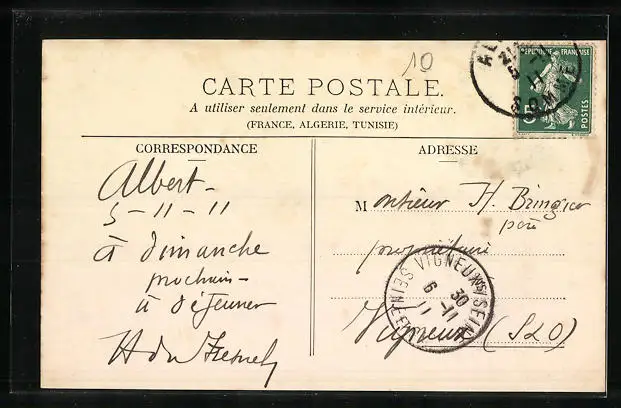 10
CARTE POSTALE.
A utiliser seulement dans le service intérieur.
(FRANCE, ALGERIE, TUNISIE)
RÉPUBLIQUE FRANÇAISE
5
POSTES
SOMME
5 -11
11
CORRESPONDANCE
ADRESSE
Albert-
5-11-11
à dimanche
prochain-
à déjeuner
Monsieur H. Bringier
père
propriétaire
Vigneux (S&O)
VIGNEUX S/SEINE
6 30
6 -11
11
SEINE